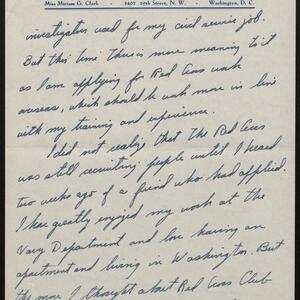 Miss Miriam G. Clark · 2407 20th Street, N. W. · Washington, D. C.
investigators used for my civil service job.
But this time there is more meaning to it
as I am applying for Red Cross work
overseas, which should be work more in line
with my training and experience.
I did not realize that the Red Cross
was still recruiting people until I heard
two weeks ago of a friend who had applied.
I have greatly enjoyed my work at the
Navy Department and love having an
apartment and living in Washington. But
the more I thought about Red Cross Club